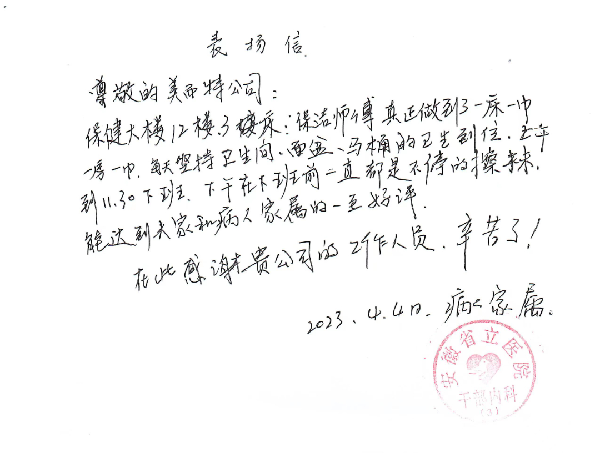 表扬信
尊敬的美而特公司：
保健大楼12楼3楼床：保洁师傅真正做到了一床一巾
一房一巾，每天坚持卫生间、面盆、马桶的卫生到位，上午
到11.30下班，下午在下班前一直都是不停的擦来
能达到大家和病人家属的一至好评.
在此感谢贵公司的工作人员，辛苦了！
2023.4.4日. 病人家属.
安徽省立医院
干部内科